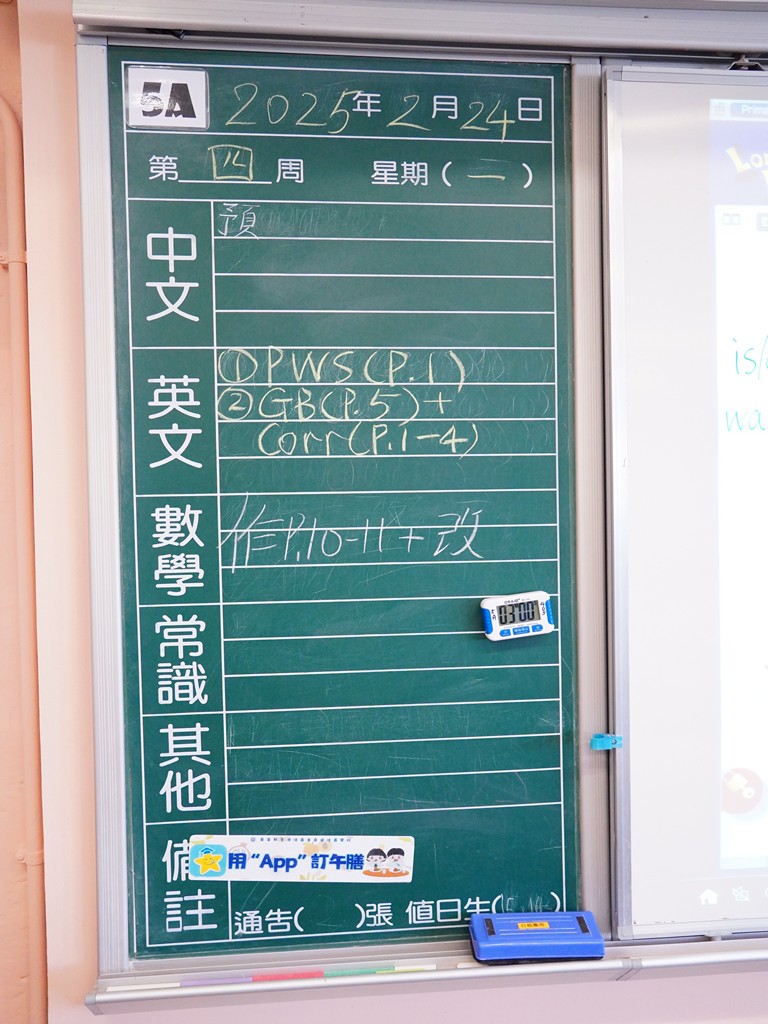 5A 2025年2月24日
第 四 周 星期(一)
中文
預
英文
①PWS(P.1)
②GB(P.5)+
Corr(P.1-4)
數學
作P.10-11+改
03:00
常識
其他
備註
用“App”訂午膳
通告( )張 值日生( )
is/
wa